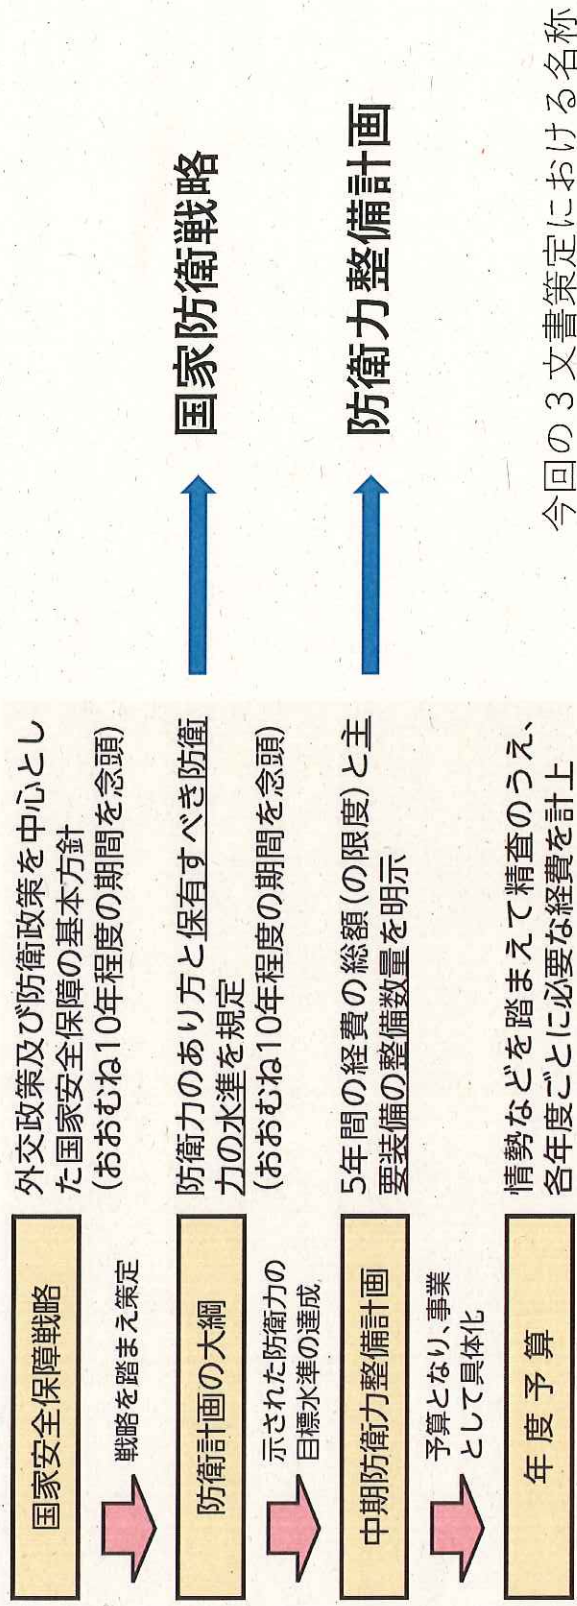 国家安全保障戦略
外交政策及び防衛政策を中心とし
た国家安全保障の基本方針
(おおむね10年程度の期間を念頭)
戦略を踏まえ策定
防衛計画の大綱
防衛力のあり方と保有すべき防衛
力の水準を規定
(おおむね10年程度の期間を念頭)
国家防衛戦略
示された防衛力の
目標水準の達成
中期防衛力整備計画
5年間の経費の総額(の限度)と主
要装備の整備数量を明示
防衛力整備計画
予算となり、事業
として具体化
年度予算
情勢などを踏まえて精査のうえ、
各年度ごとに必要な経費を計上
今回の3文書策定における名称